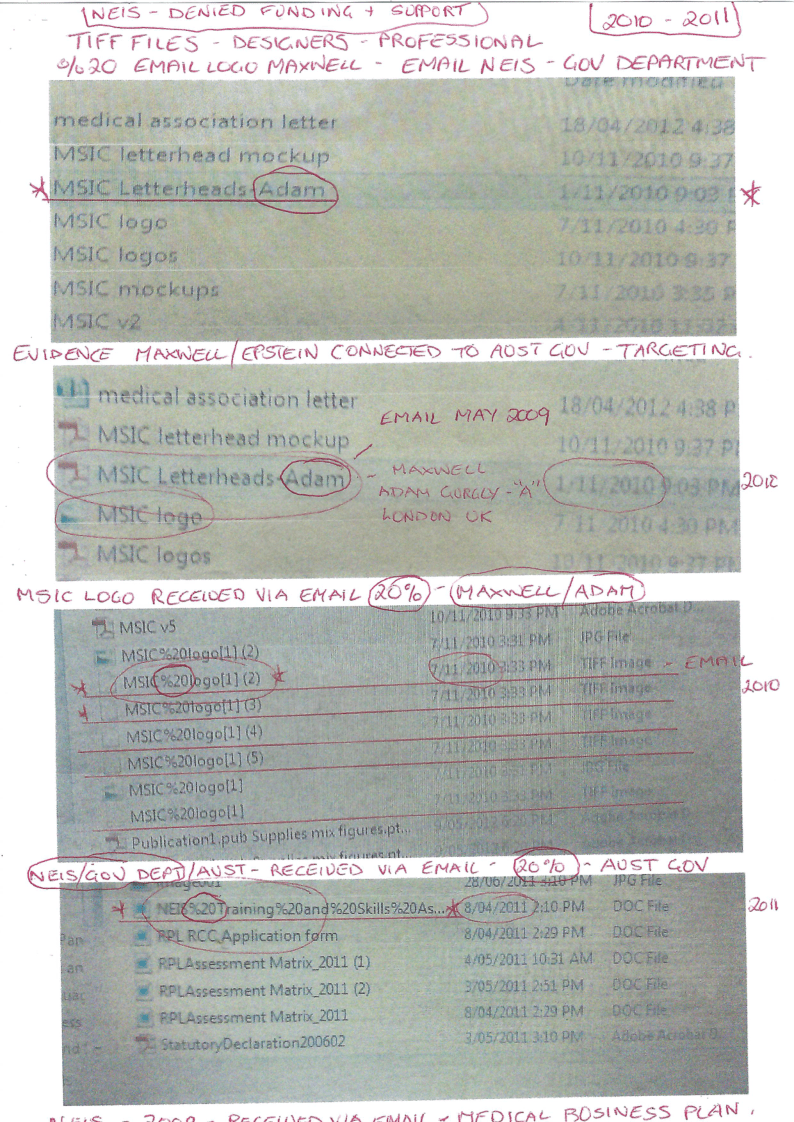 NEIS - DENIED FUNDING + SUPPORT 2010 - 2011
TIFF FILES - DESIGNERS - PROFESSIONAL
%20 EMAIL LOGO MAXWELL - EMAIL NEIS - GOV DEPARTMENT
Date modified
medical association letter 18/04/2012 4:38
MSIC letterhead mockup 10/11/2010 9:37
MSIC Letterheads-Adam 1/11/2010 9:03
MSIC logo 7/11/2010 4:30 P
MSIC logos 10/11/2010 9:37
MSIC mockups 7/11/2010 3:35 P
MSIC v2
EVIDENCE MAXWELL/EPSTEIN CONNECTED TO AUST GOV - TARGETING.
medical association letter 18/04/2012 4:38 P
EMAIL MAY 2009
MSIC letterhead mockup 10/11/2010 9:37 P
MSIC Letterheads-Adam - MAXWELL 1/11/2010 9:03 PM 2010
ADAM GURGLY - "A"
MSIC logo LONDON UK 7 11 2010 4:30 PM
MSIC logos 10 11 2010 9:37 PM
MSIC LOGO RECEIVED VIA EMAIL 20% - MAXWELL/ADAM
MSIC v5 10/11/2010 9:33 PM Adobe Acrobat D...
MSIC%20logo[1] (2) 7/11/2010 3:31 PM JPG File
MSIC%20logo[1] (2) 7/11/2010 3:33 PM TIFF Image - EMAIL
MSIC%20logo[1] (3) 7/11/2010 3:33 PM TIFF Image 2010
MSIC%20logo[1] (4) 7/11/2010 3:33 PM TIFF Image
MSIC%20logo[1] (5) 7/11/2010 3:33 PM TIFF Image
MSIC%20logo[1] JPG File
MSIC%20logo[1] 7/11/2010 3:33 PM TIFF Image
Publication1.pub Supplies mix figures.pt...
NEIS/GOV DEPT/AUST - RECEIVED VIA EMAIL - 20% - AUST GOV
image001 28/06/2011 3:10 PM JPG File
NEIS%20Training%20and%20Skills%20As... 8/04/2011 2:10 PM DOC File 2011
RPL RCC Application form 8/04/2011 2:29 PM DOC File
RPLAssessment Matrix_2011 (1) 4/05/2011 10:31 AM DOC File
RPLAssessment Matrix_2011 (2) 3/05/2011 2:51 PM DOC File
RPLAssessment Matrix_2011 8/04/2011 2:29 PM DOC File
StatutoryDeclaration200602 3/05/2011 3:10 PM Adobe Acrobat D
NEIS - 2009 - RECEIVED VIA EMAIL - MEDICAL BUSINESS PLAN.